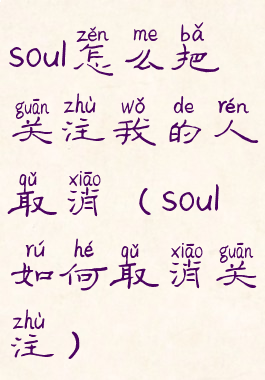 zěn me bǎ
soul怎么把
guān zhù wǒ de rén
关注我的人
qǔ xiāo
取消（soul
rú hé qǔ xiāo guān
如何取消关
zhù
注）